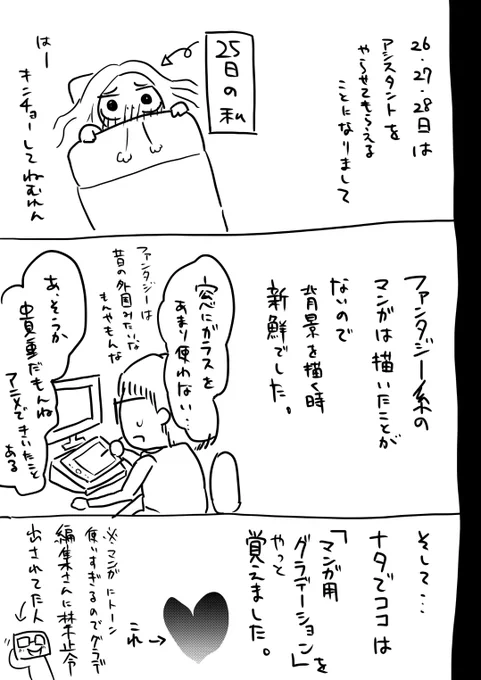 26・27・28日は
アシスタントを
やらせてもらえる
ことになりまして
25日の私
はー
キンチョーしてねむれん
ファンタジー系の
マンガは描いたことが
ないので
背景を描く時
新鮮でした。
窓にガラスを
あまり使わない…
ファンタジーは
昔の外国みたいな
もんやもんな
あ、そうか
貴重だもんね
アニメできいたこと
ある
そして…
ナタでココは
「マンガ用
グラデーション」を
やっと
覚えました。
これ→
※マンガにトーン
使いすぎるのでグラデ
編集さんに禁止令
出されてた人